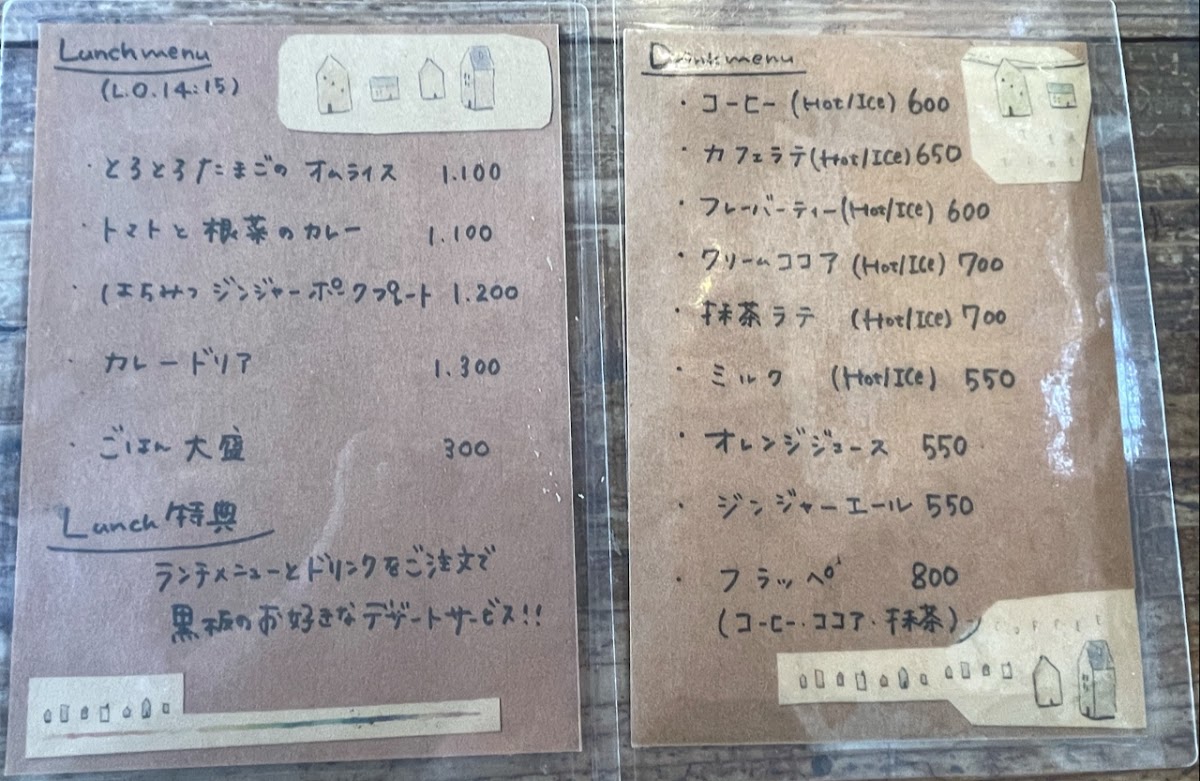 Lunch menu
(L.O.14:15)
・とろとろたまごの オムライス 1.100
・トマトと 根菜のカレー 1.100
・はちみつ ジンジャーポークプレート 1.200
・カレードリア 1.300
・ごはん 大盛 300
Lunch 特典
ランチメニューとドリンクをご注文で
黒板のお好きなデザートサービス!!
Drink menu
・コーヒー (Hot/Ice) 600
・カフェラテ(Hot/Ice) 650
・フレーバーティー(Hot/Ice) 600
・クリームココア (Hot/Ice) 700
・抹茶ラテ (Hot/Ice) 700
・ミルク (Hot/Ice) 550
・オレンジジュース 550
・ジンジャーエール 550
・フラッペ 800
(コーヒー・ココア・抹茶)
COFFEE